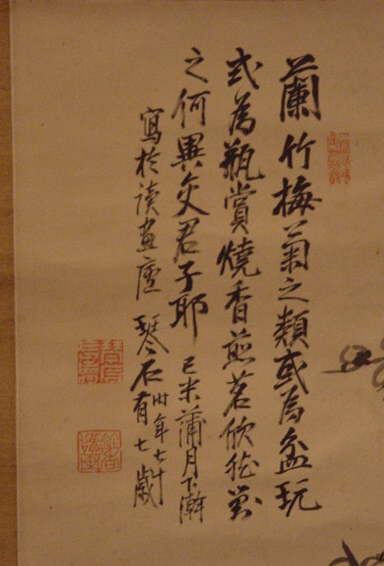 蘭竹梅菊之類或為盆玩
或為瓶賞燒香煎茗欣然對
之何異交君子耶 己未蒲月下澣
寫於讀畫廬 琴石 時年七十有七歲